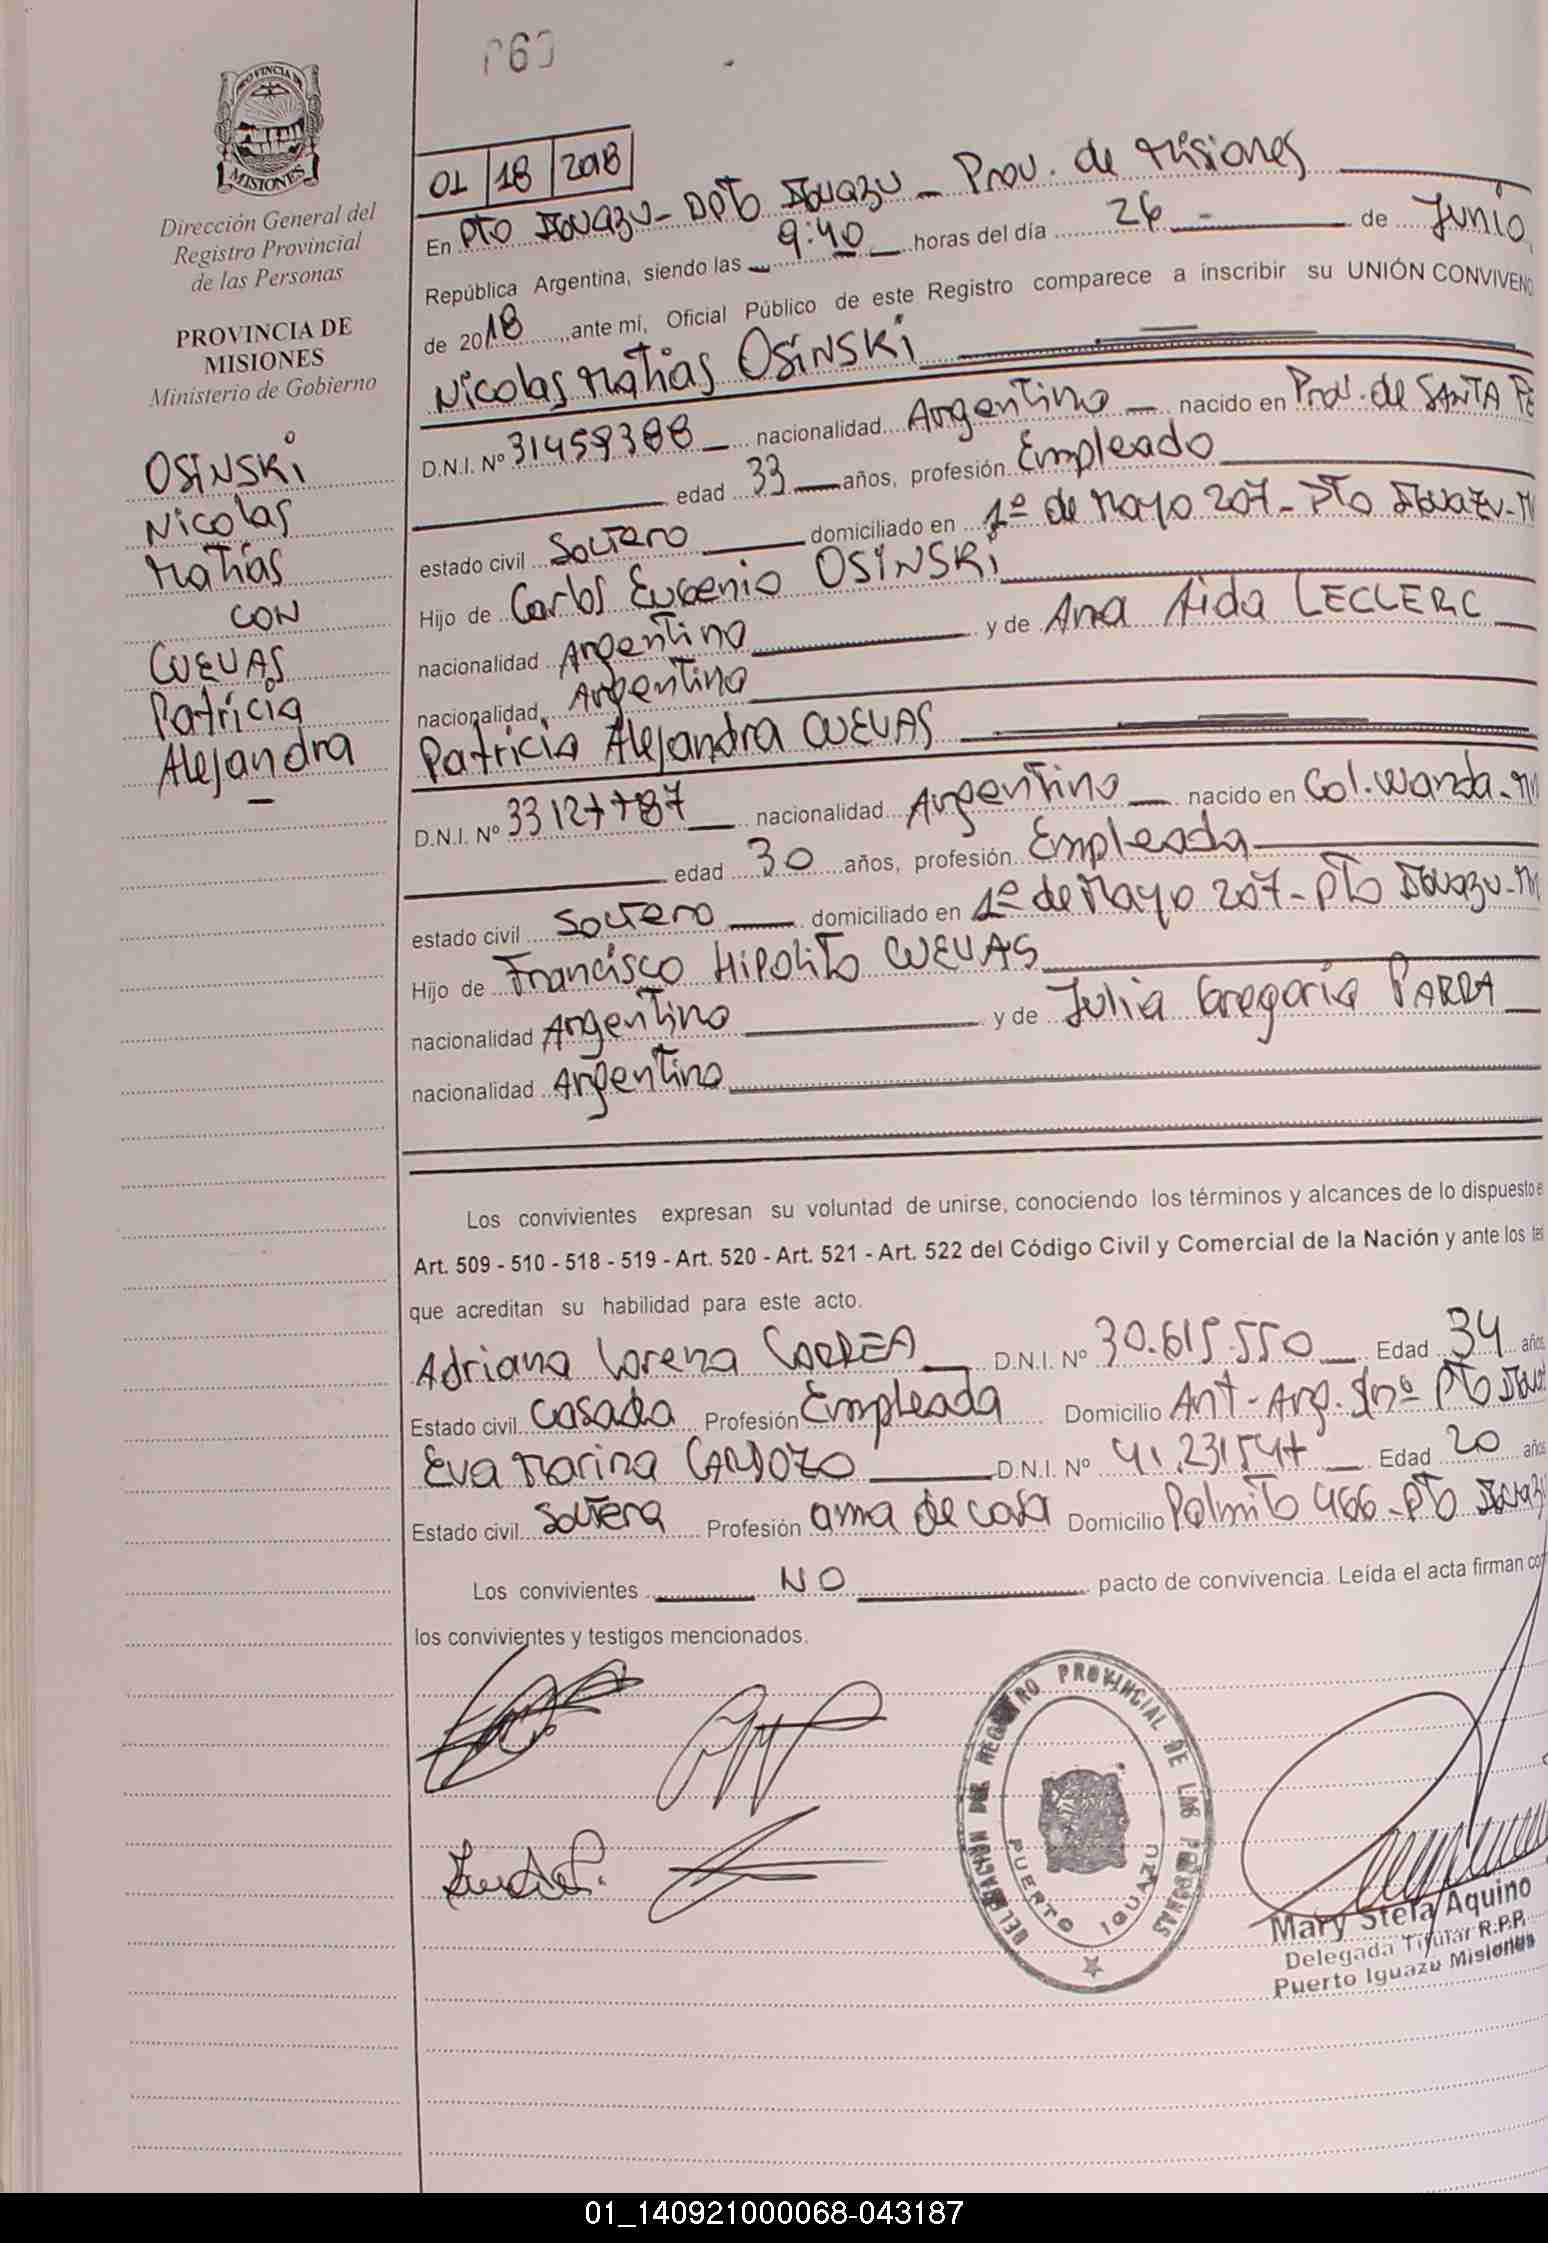 060
PROVINCIA DE
MISIONES
Dirección General del
Registro Provincial
de las Personas
PROVINCIA DE
MISIONES
Ministerio de Gobierno
OSINSKI
Nicolas
Matías
CON
CUEVAS
Patricia
Alejandra
01 18 2018
En Pto Iguazu - Dpto Iguazu - Prov. de Misiones
República Argentina, siendo las 9:40 horas del día 26 - de Junio,
de 2018, ante mí, Oficial Público de este Registro comparece a inscribir su UNIÓN CONVIVENC
Nicolas Matías OSINSKI
D.N.I. Nº 31459388 nacionalidad Argentino nacido en Prov. de SANTA FE
edad 33 años, profesión Empleado
estado civil Soltero domiciliado en 1º de Mayo 207 - Pto Iguazu - M
Hijo de Carlos Eugenio OSINSKI
nacionalidad Argentino y de Ana Aida LECLERC
nacionalidad, Argentino
Patricia Alejandra CUEVAS
D.N.I. Nº 33127787 nacionalidad Argentino nacido en Col. Wanda - Mi
edad 30 años, profesión Empleada
estado civil Soltero domiciliado en 1º de Mayo 207 - Pto Iguazu - M
Hijo de Francisco Hipolito CUEVAS
nacionalidad Argentino y de Julia Gregoria PARRA
nacionalidad Argentino
Los convivientes expresan su voluntad de unirse, conociendo los términos y alcances de lo dispuesto e
Art. 509 - 510 - 518 - 519 - Art. 520 - Art. 521 - Art. 522 del Código Civil y Comercial de la Nación y ante los tes
que acreditan su habilidad para este acto.
Adriana Lorena CORREA D.N.I. Nº 30.615.550 Edad 34 años
Estado civil Casada Profesión Empleada Domicilio Ant-Arg. Snº Pto Igua
Eva Marina CARDOZO D.N.I. Nº 41.231547 Edad 20 años
Estado civil Soltera Profesión ama de casa Domicilio Palmito 466 - Pto Iguazu
Los convivientes NO pacto de convivencia. Leída el acta firman co
los convivientes y testigos mencionados.
DELEGACION DEL REGISTRO PROVINCIAL DE LAS PERSONAS
PUERTO IGUAZU
Mary Stela Aquino
Delegada Titular R.P.P.
Puerto Iguazú Misiones
01_140921000068-043187